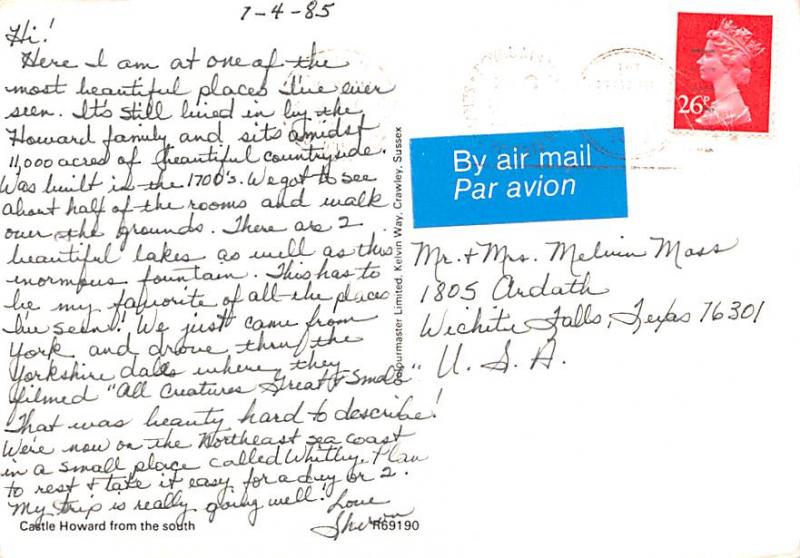 7-4-85
Hi!
Here I am at one of the
most beautiful places I've ever
seen. It's still lived in by the
Howard family and sits amidst
11,000 acres of beautiful countryside.
Was built in the 1700's. We got to see
about half of the rooms and walk
over the grounds. There are 2
beautiful lakes as well as this
enormous fountain. This has to
be my favorite of all the places
I've seen! We just came from
York and drove thru the
Yorkshire dales where they
filmed "All Creatures Great & Small".
That was beauty hard to describe!
We're now on the Northeast sea coast
in a small place called Whitby. Plan
to rest & take it easy for a day or 2.
My trip is really going well!
Love
Sharon
Castle Howard from the south
R69190
Colourmaster Limited, Kelvin Way, Crawley, Sussex
26P
By air mail
Par avion
Mr. & Mrs. Melvin Moss
1805 Ardath
Wichita Falls, Texas 76301
U. S. A.